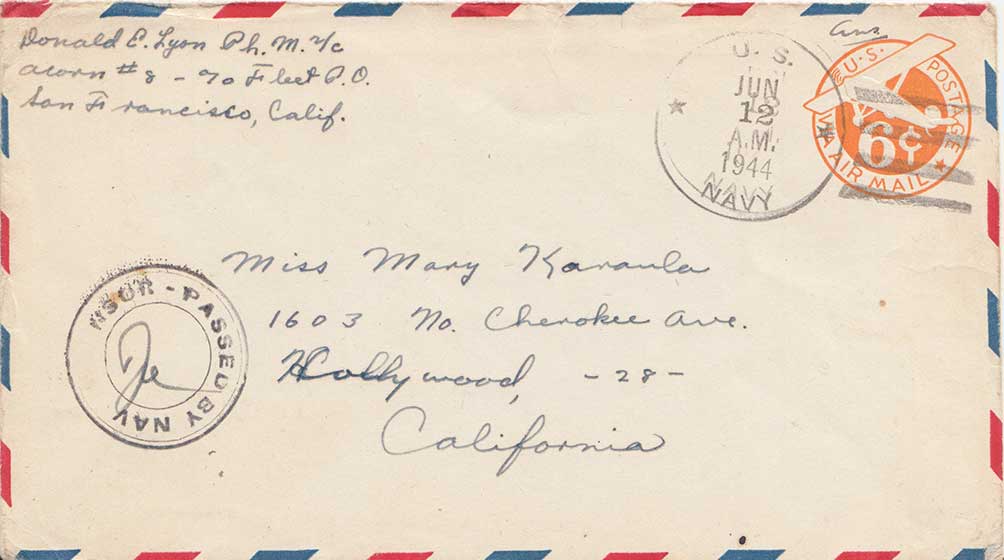 Donald E. Lyon Ph. M. 1/c
Acorn #8 - % Fleet P.O.
San Francisco, Calif.
Ans.
U. S.
JUN
12
A.M.
1944
NAVY
U.S. POSTAGE
6¢
VIA AIR MAIL
Miss Mary Karaula
1603 No. Cherokee Ave.
Hollywood, -28-
California
NSOR - PASSED BY NAV